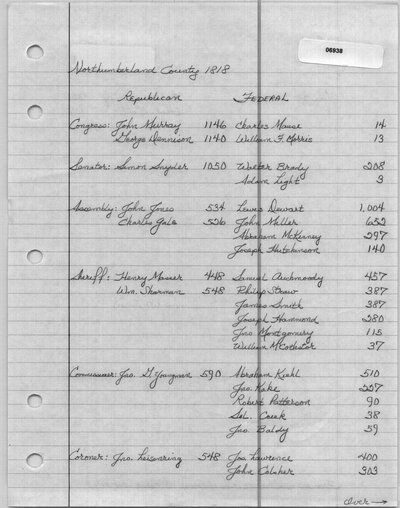 06938
Northumberland County 1818
Republican FEDERAL
Congress: John Murray 1146 Charles Maus 14
George Dennison 1140 William F. Morris 13
Senator: Simon Snyder 1050 Walter Brady 208
Adam Light 3
Assembly: John Jones 534 Lewis Dewart 1,004
Charles Gale 526 John Miller 652
Abraham McKinney 297
Joseph Hutchinson 140
Sheriff: Henry Masser 448 Samuel Auchmoody 457
Wm. Sharman 548 Philip Straw 387
James Smith 387
Joseph Hammond 280
Jno. Montgomery 115
William 37
Commissioner: Jno. G. Youngman 590 Abraham Kiehl 510
Jno. Kake 227
Robert Patterson 90
Sol. 38
Jno. Baldy 59
Coroner: Jno. Leisenring 548 Jos Lawrence 400
John 303
Over →